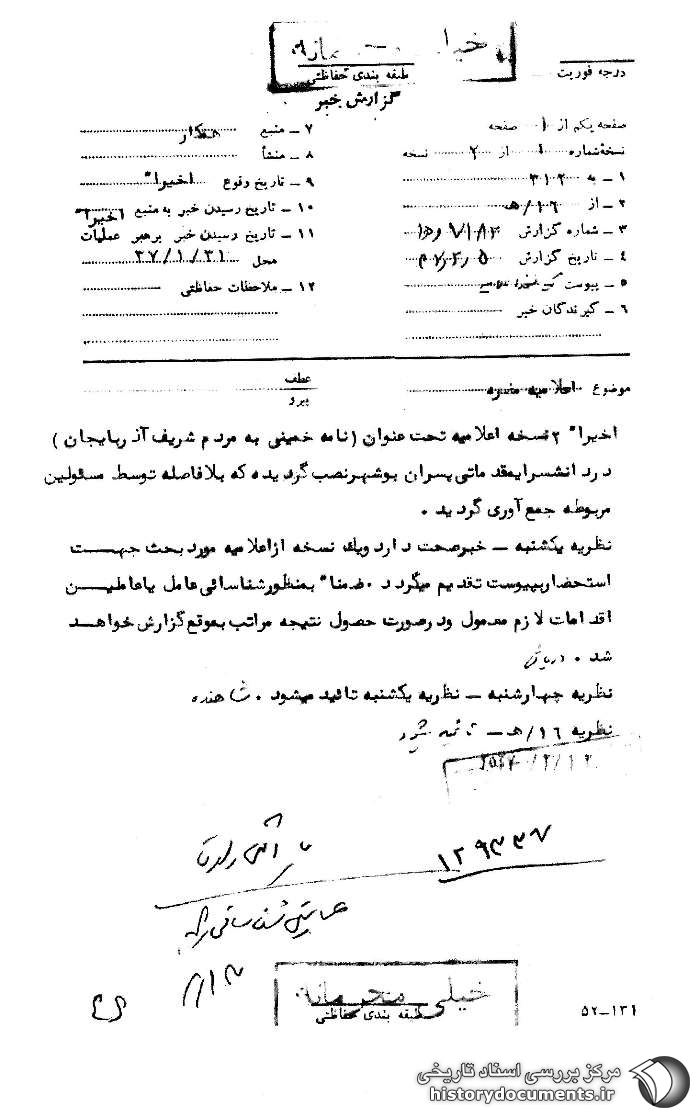 خیلی محرمانه
طبقه بندی حفاظتی
درجه فوریت
گزارش خبر
صفحه یکم از ۱ صفحه
نسخهٔ شماره ۱ از ۲ نسخه
۱ ـ به ۳۱۲
۲ ـ از ۱۶/هـ
۳ ـ شماره گزارش
۴ ـ تاریخ گزارش
۵ ـ پیوست
۶ ـ گیرندگان خبر
۷ ـ منبع همکار
۸ ـ منشأ
۹ ـ تاریخ وقوع اخیراً
۱۰ ـ تاریخ رسیدن خبر به منبع اخیراً
۱۱ ـ تاریخ رسیدن خبر برهبر عملیات
محل ۳۷/۱/۳۱
۱۲ ـ ملاحظات حفاظتی
موضوع اعلامیه مضره
عطف
پیرو
اخیراً ۲ نسخه اعلامیه تحت عنوان (نامه خمینی به مردم شریف آذربایجان)
در دانشسرایمقدماتی پسران بوشهر نصب گردیده که بلافاصله توسط مسئولین
مربوطه جمع آوری گردید.
نظریه یکشنبه ـ خبر صحت دارد و یک نسخه از اعلامیه مورد بحث جهت
استحضار بپیوست تقدیم میگردد. ضمناً بمنظور شناسائی عامل یا عاملین
اقدامات لازم معمول و در صورت حصول نتیجه مراتب بموقع گزارش خواهد
شد.
نظریه چهارشنبه ـ نظریه یکشنبه تائید میشود. شاهنده
نظریه ۱۶/هـ ـ تائید میشود
۱۲۹۳۳۷
خیلی محرمانه
طبقه بندی حفاظتی
۵۲-۱۳۱
مرکز بررسی اسناد تاریخی
historydocuments.ir